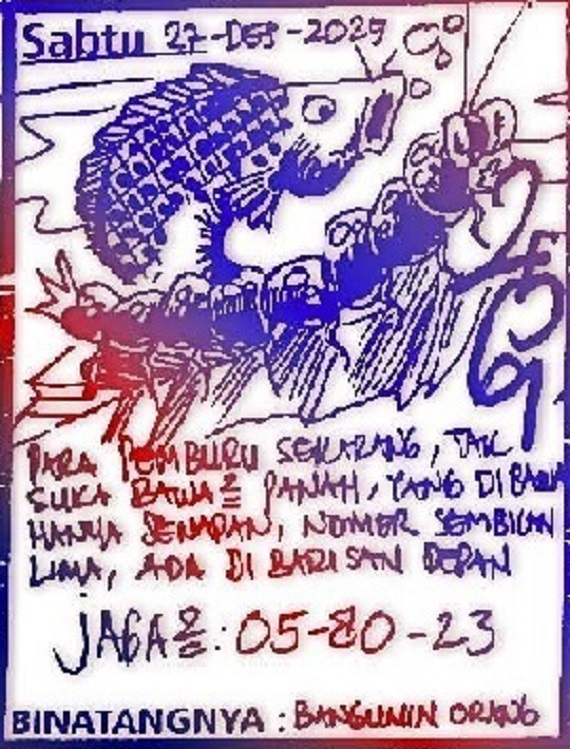 Sabtu 27-DES-2025
PARA PEMBURU SEKARANG, TAK
SUKA BAWA2 PANAH, YANG DI BAWA
HANYA SENAPAN, NOMER SEMBILAN
LIMA, ADA DI BARISAN DEPAN
JAGA2: 05-80-23
BINATANGNYA : BANGUNIN ORANG